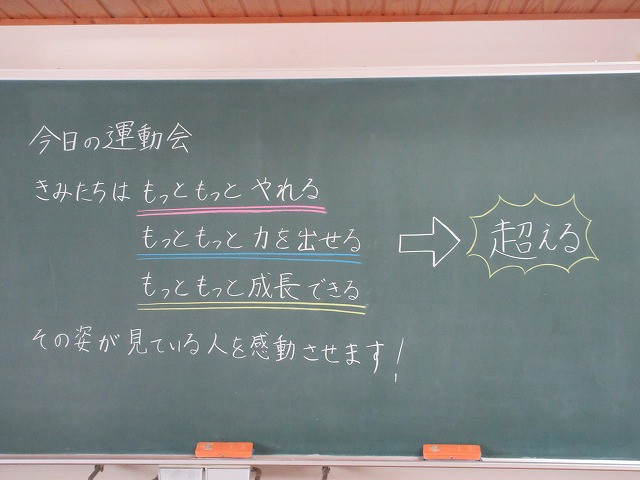 今日の運動会
きみたちは もっともっと やれる
もっともっと 力を出せる
もっともっと 成長できる
超える
その姿が見ている人を感動させます!